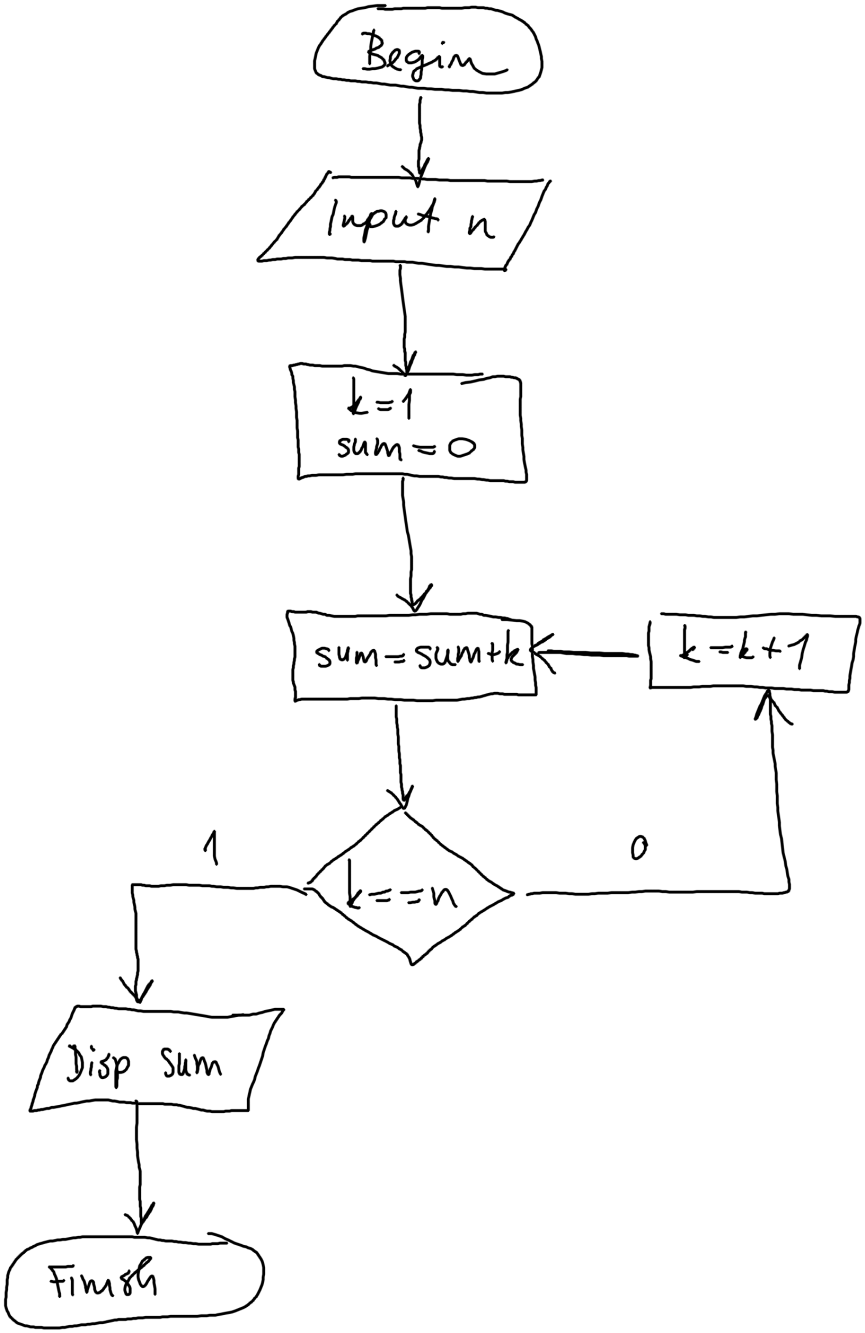 Begin
Input n
k=1
sum=0
sum=sum+k
k=k+1
k==n
1
0
Disp sum
Finish